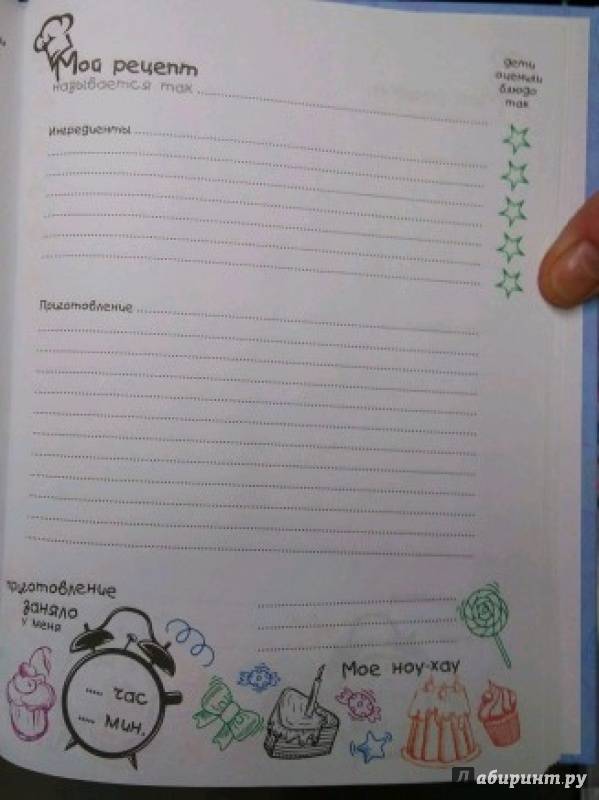 Мой рецепт
называется так
дети
оценили
блюдо
так
Ингредиенты
Приготовление
приготовление
заняло
у меня
час
мин.
Мое ноу-хау
Лабиринт.ру